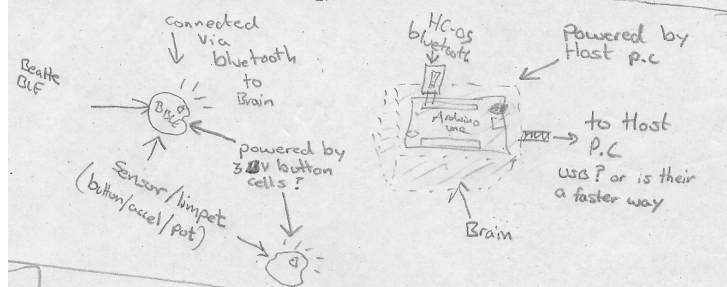 connected
via
bluetooth
to
Brain
Beatle
BLE
BBLE
powered by
3V button
cells?
Sensor/limpet
(button/accel/pot)
HC-05
bluetooth
Powered by
Host p.c
Arduino
une
to Host
P.C
USB? or is their
a faster way
Brain